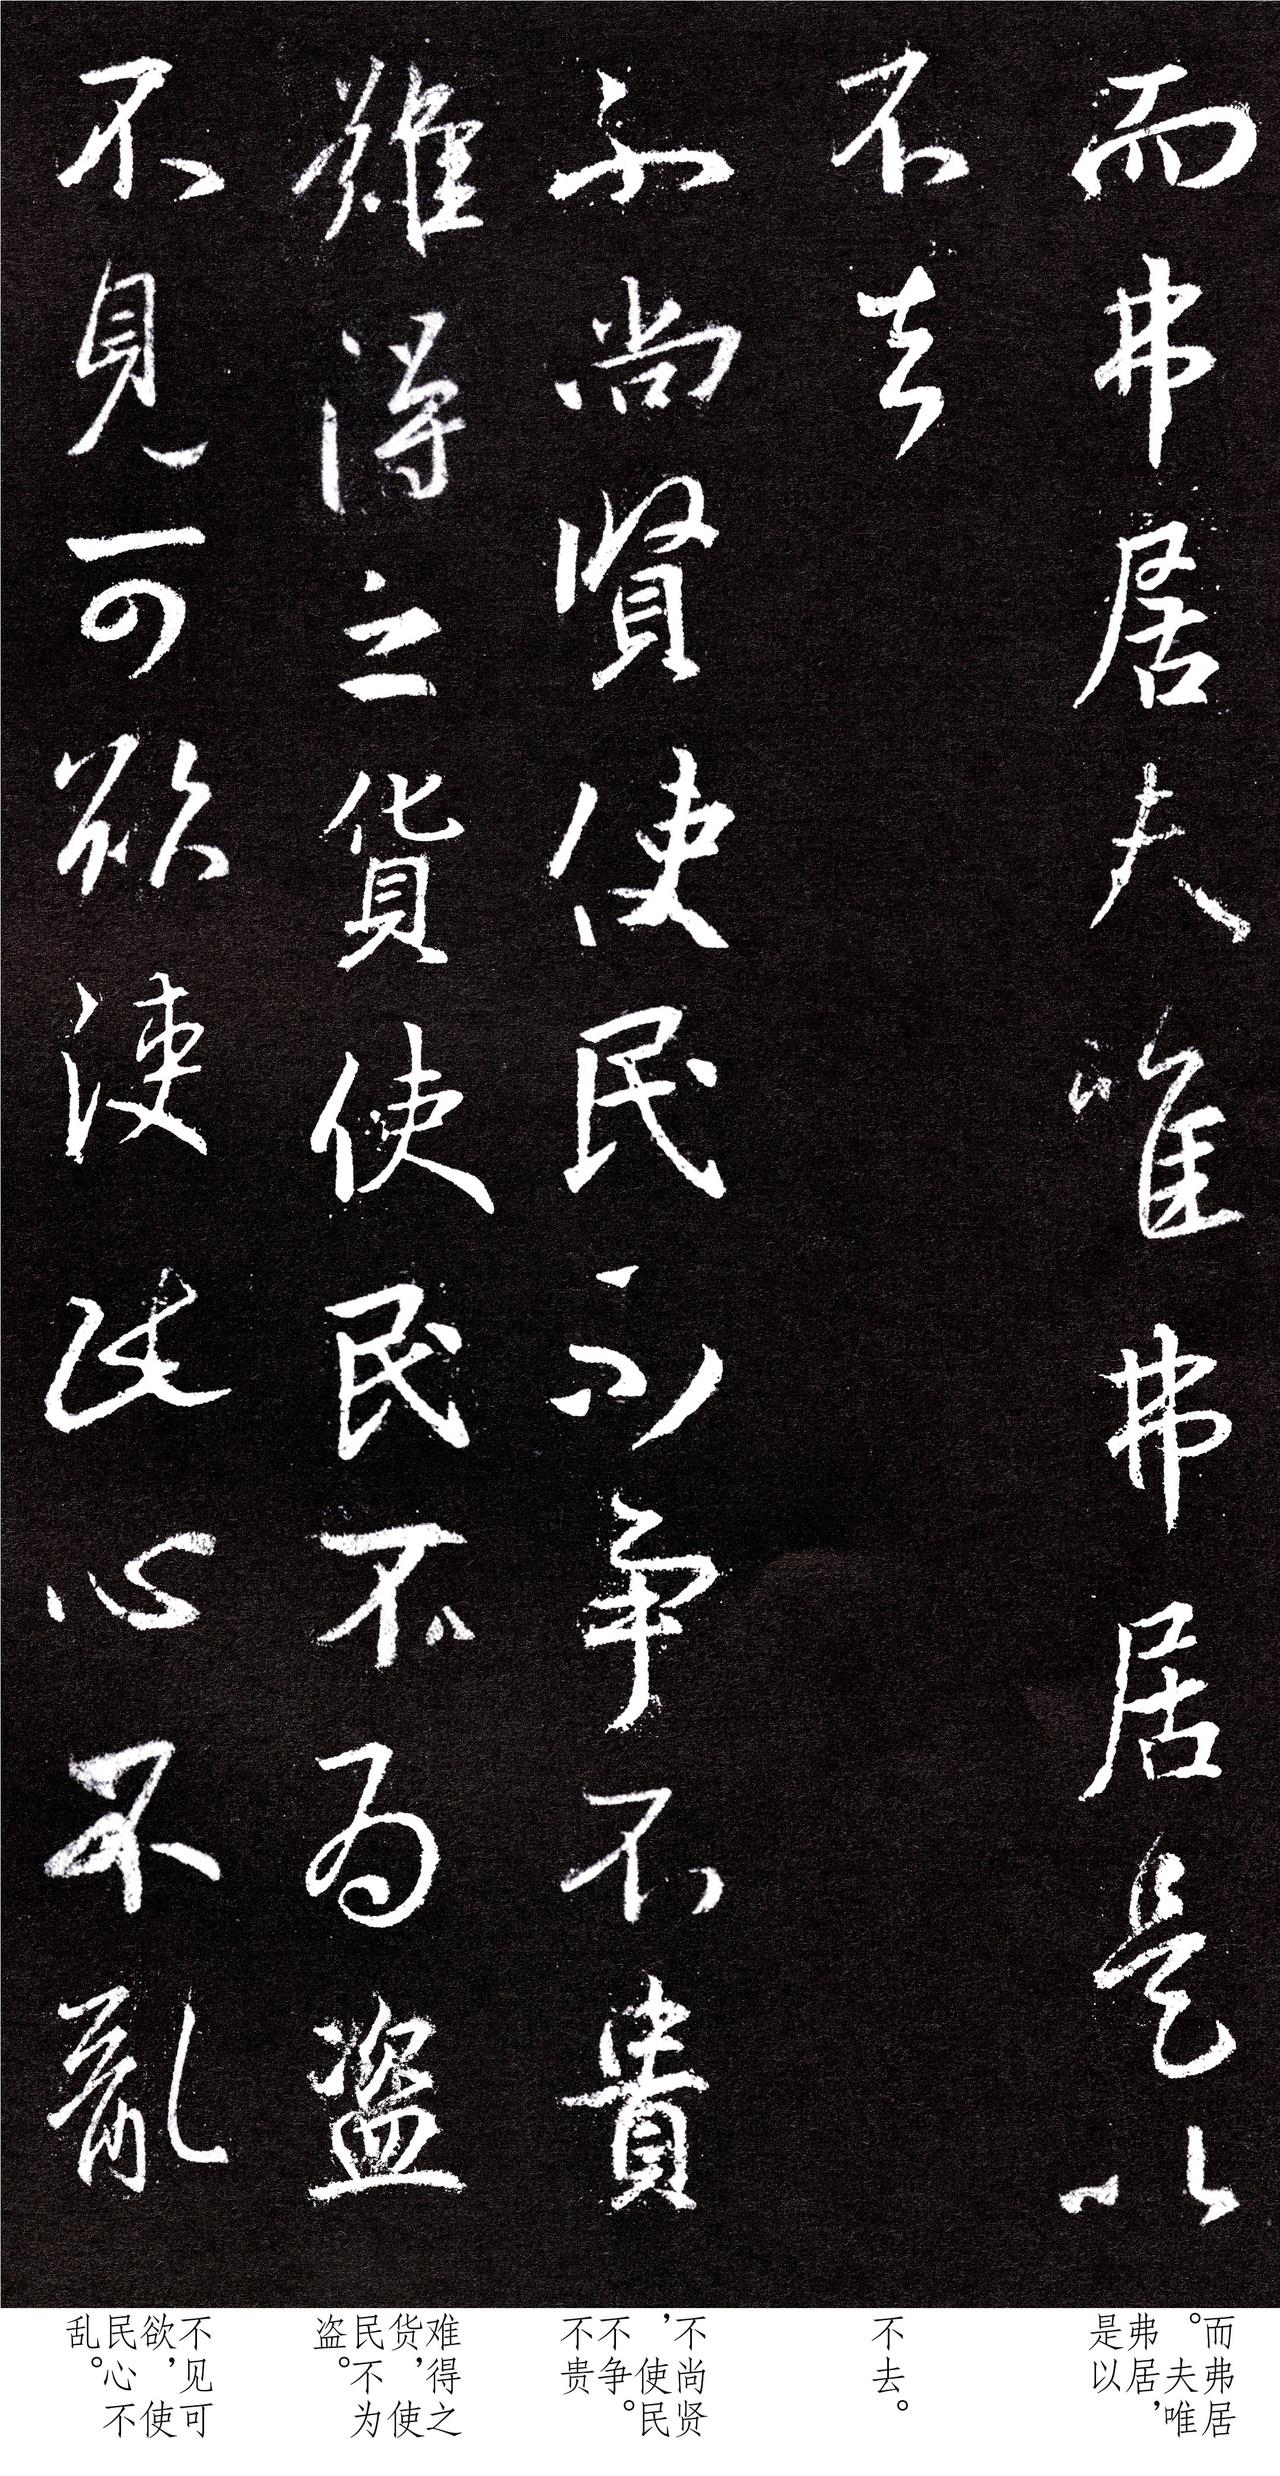 而弗居夫唯弗居是以
不去
不尚賢使民不争不貴
難得之貨使民不為盗
不見可欲使民心不亂
而弗居
。夫唯
弗居，
是以
不去。
不尚贤
，使民
不争。
不贵
难得之
货，使
民不为
盗。
不见可
欲，使
民心不
乱。